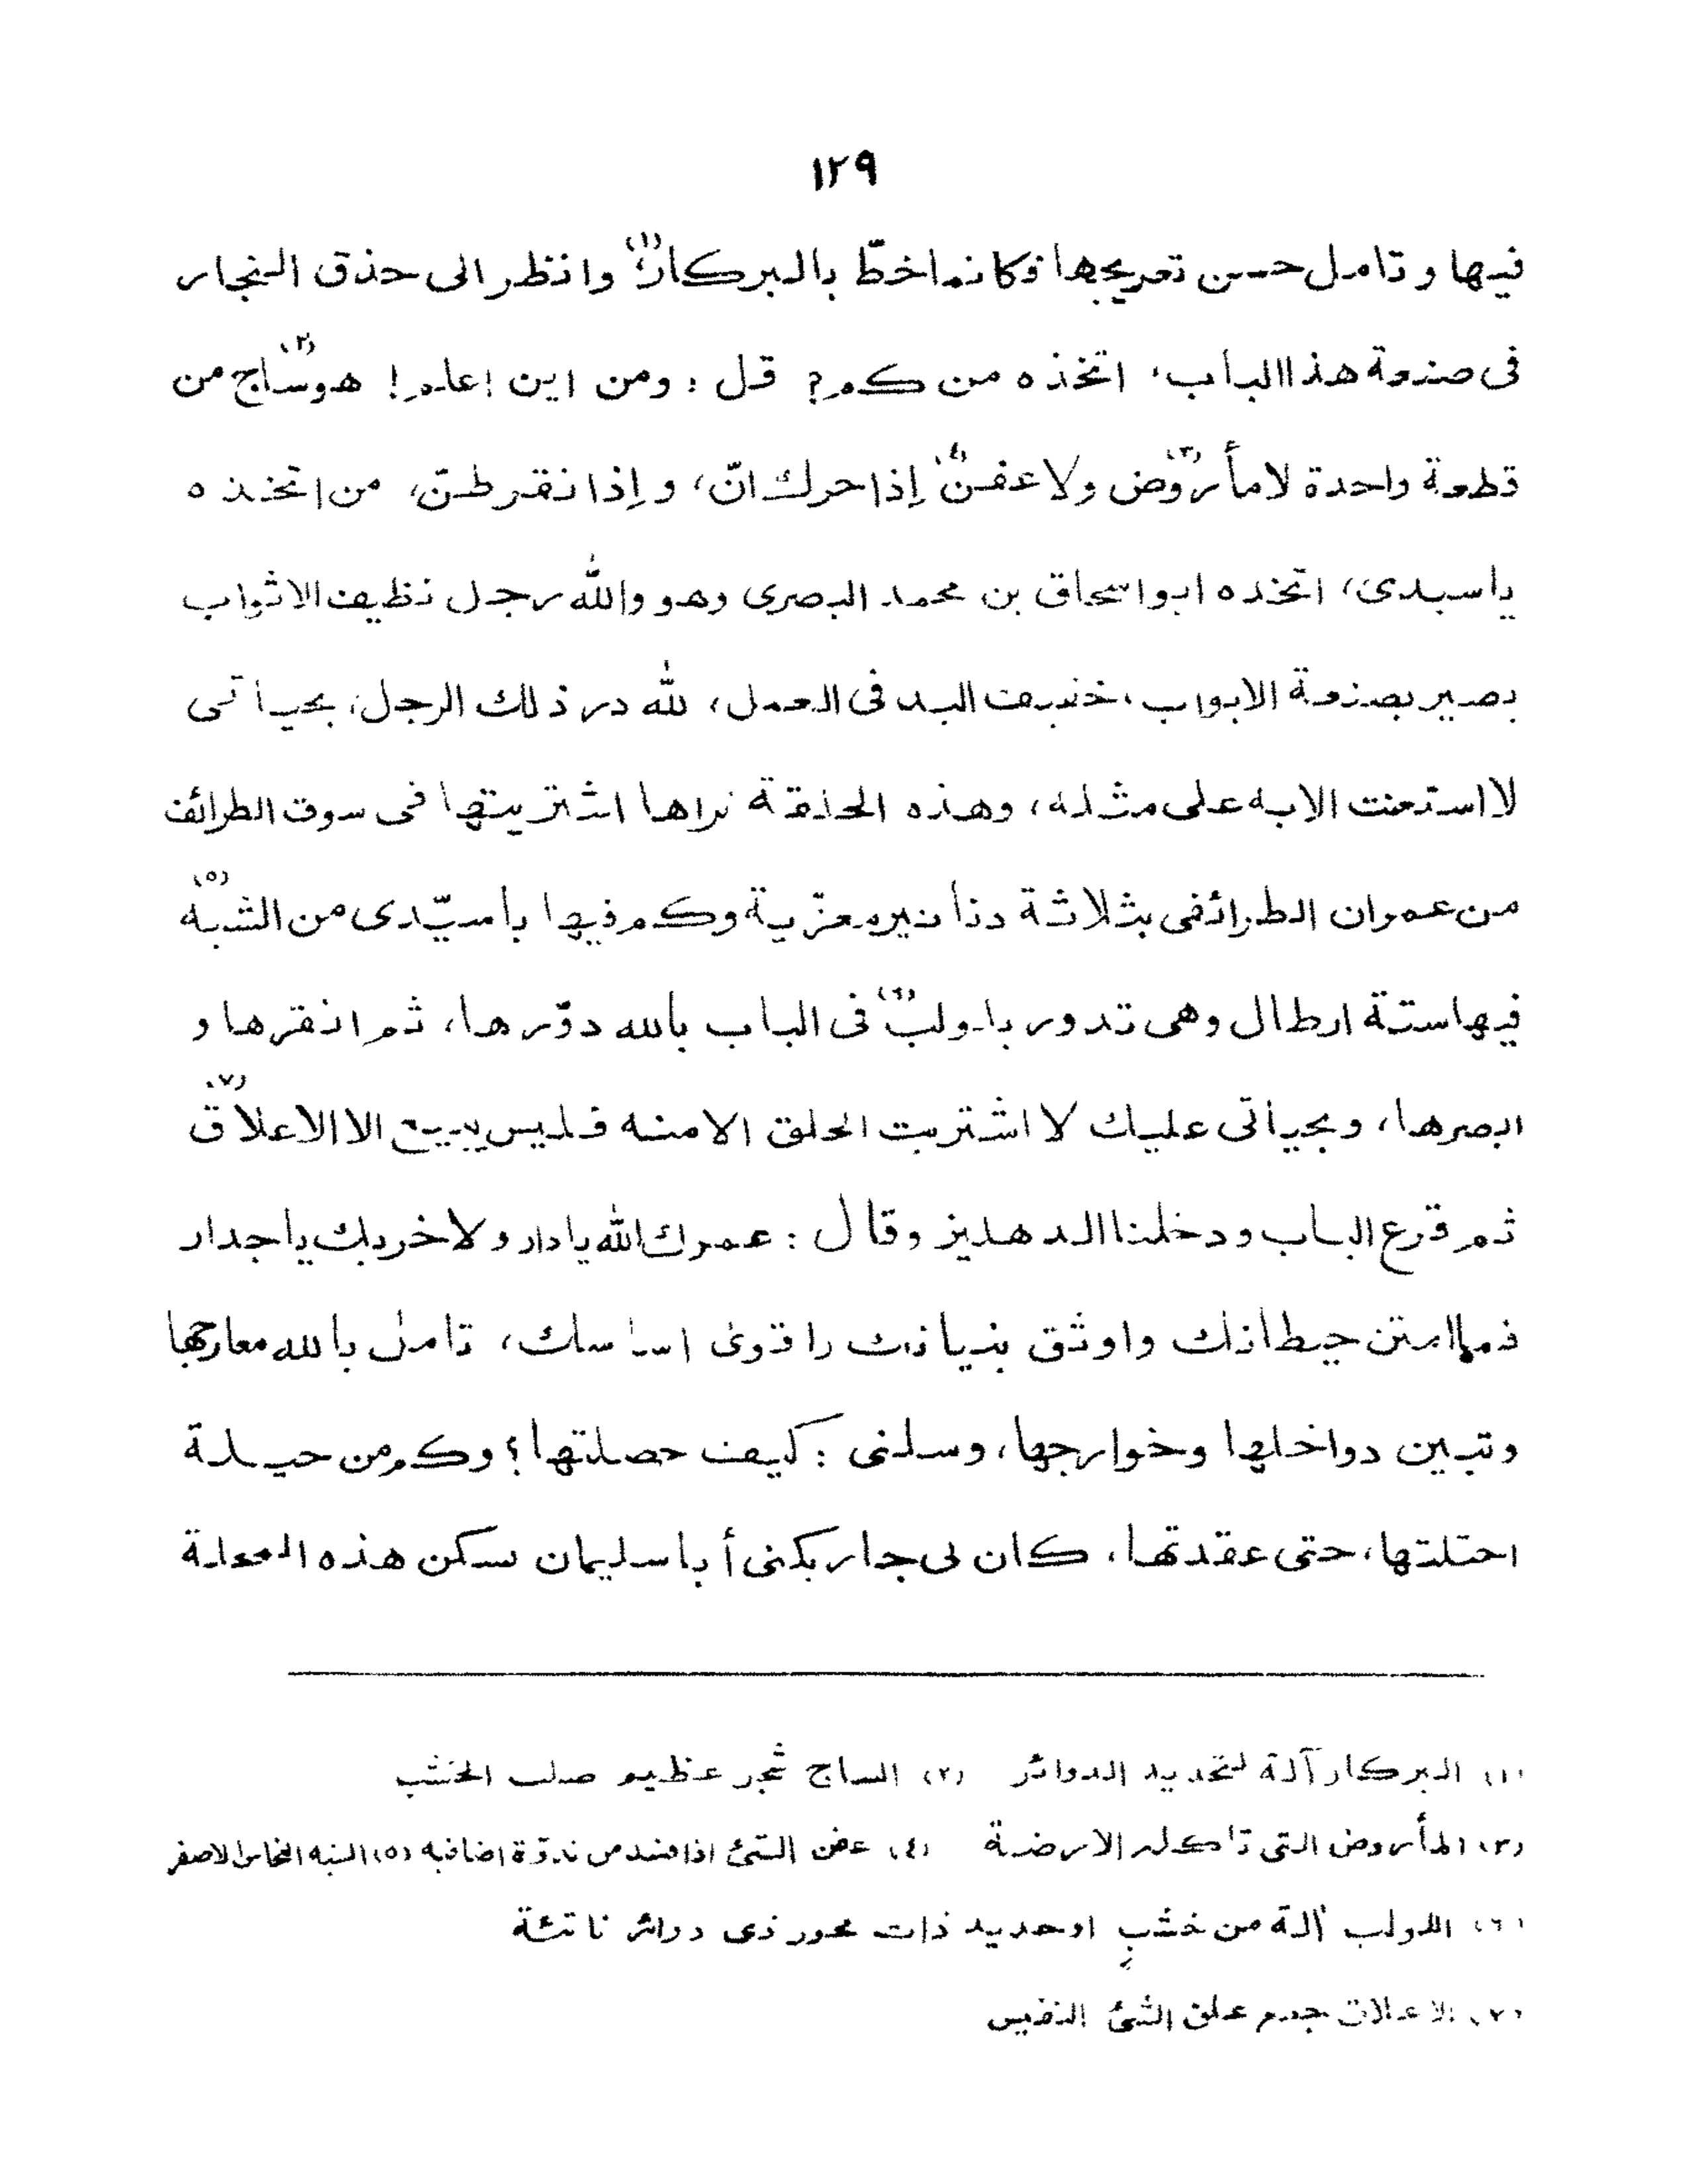 ١٢٩
فيها وتامل حسن تعريجها فكانما خطّ بالبركار(١) وانظر الى حذق النجار
فى صنعة هذا الباب، اتخذه من كم? قل : ومن اين اعلم! هو ساج(٢) من
قطعة واحدة لا مأروض(٣) ولا عفن(٤) إذا حرك انّ، وإذا نقر طنّ، من اتخذه
يا سيدى، اتخذه ابو اسحاق بن محمد البصرى وهو والله رجل نظيف الاثواب
بصير بصنعة الابواب، خفيف اليد فى العمل، لله در ذلك الرجل، بحياتى
لا استعنت الا به على مثله، وهذه الحلقة تراها اشتريتها فى سوق الطرائف
من عمران الطرائفى بثلاثة دنانير معزّية وكم فيها يا سيّدى من الشبه(٥)
فيها ستة ارطال وهى تدور بلولب(٦) فى الباب بالله دوّرها، ثم انقرها و
ابصرها، وبحياتى عليك لا اشتريت الحلق الا منه فليس يبيع الا الاعلاق(٧)
ثم قرع الباب ودخلنا الدهليز وقال : عمرك الله يا دار ولا خربك يا جدار
فما امتن حيطانك واوثق بنيانك واقوى اساسك، تامل بالله معارجها
وتبين دواخلها وخوارجها، وسلنى : كيف حصلتها؟ وكم من حيلة
احتلتها، حتى عقدتها، كان لى جار يكنى أبا سليمان سكن هذه المحلة
(١) البركار آلة لتحديد الدوائر (٢) الساج شجر عظيم صلب الخشب
(٣) المأروض التى تاكله الارضة (٤) عفن الشئ اذا فسد من ندوّة اصابته (٥) الشبه النحاس الاصفر
(٦) اللولب آلة من خشب او حديد ذات محور ذى دوائر ناتئة
(٧) الاعلاق جمع علق الشئ النفيس